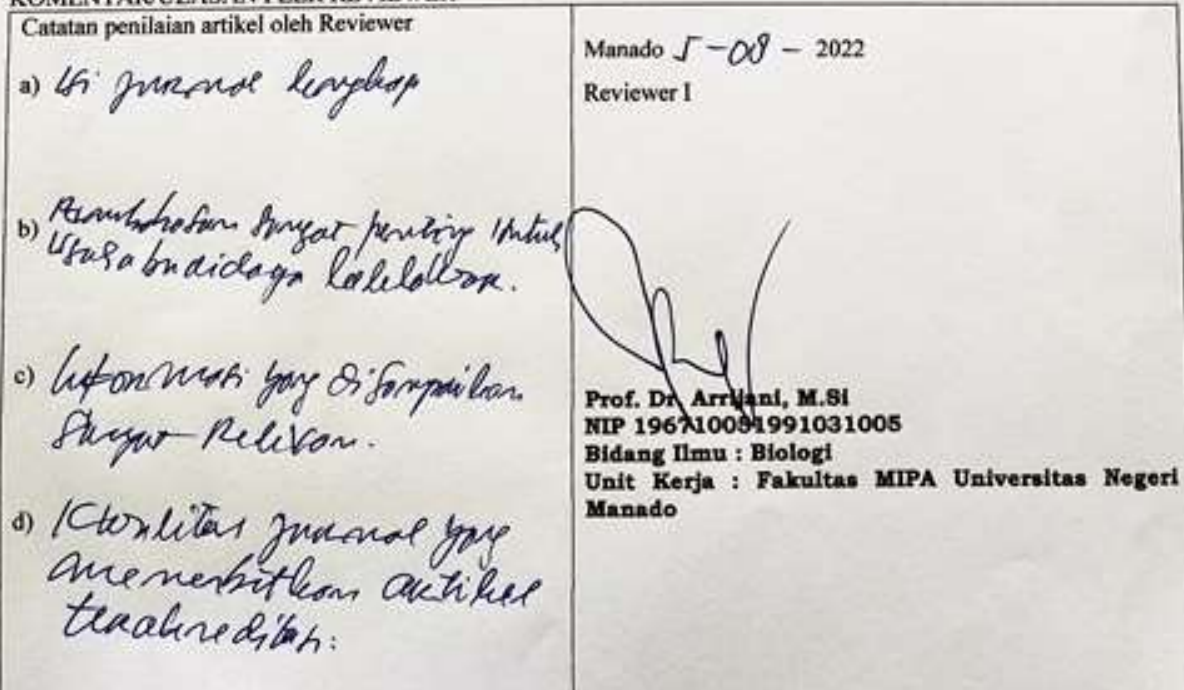 KOMENTAR/ULASAN PEER REVIEWER
Catatan penilaian artikel oleh Reviewer
a) Isi jurnal lengkap
b) Pembahasan sangat penting untuk
usaha budidaya
c) Informasi yang disampaikan
sangat Relevan.
d) Kwalitas jurnal yang
menerbitkan artikel
terakreditasi.
Manado 5-08-2022
Reviewer I
Prof. Dr. Arrijani, M.Si
NIP
Bidang Ilmu : Biologi
Unit Kerja : Fakultas MIPA Universitas Negeri
Manado